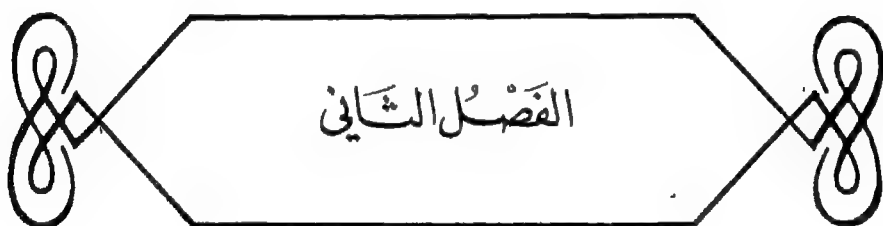 الفَصْلُ الثَّانِى